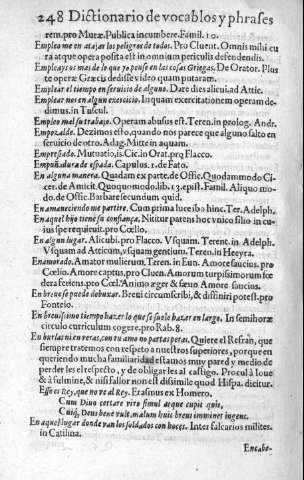 248 Dictionario de vocablos y phrases
rem. pro Muræ. Publica incumbere. Famil. 10.
Empleo me en atajar los peligros de todos. Pro Cluent. Omnis mihi cu
ra atque opera posita est in omnium periculis defendendis.
Empleays os mas de lo que yo pense en las cosas Griegas. De Orator. Plus
te operæ Græcis dedisse video quam putaram.
Emplear el tiempo en seruicio de alguno. Dare dies alicui. ad Attic.
Emplear mes en algun exercicio. In quam exercitationem operam de-
dimus. in Tuscul.
Empleo mal su trabajo. Operam abusus est. Teren. in prolog. Andr.
Empozalde. Dezimos esto, quando nos parece que alguno salto en
seruicio de otro. Adag. Mitte in aquam.
Emprestado. Mutuatio, is. Cic. in Orat. prq Flacco.
Empuñadura de espada. Capulus. 1. de Fato.
En alguna manera. Quadam ex parte. de Offic. Quodammodo Ci-
cer. de Amicit. Quoquomodo. lib. 13. epist. Famil. Aliquo mo-
do. de Offic. Barbare secundum quid.
En amaneciendo me partire. Cum prima luce ibo hinc. Ter. Adelph.
En aquel hijo tiene su confiança. Nititur parens hoc vnico filio in cu-
ius spe requieuit. pro Cœlio.
En algun lugar. Alicubi. pro Flacco. Vsquam. Terent. in Adelph.
Vsquam ad Atticum, vsquam gentium. Teren. in Heeyra.
Enamorado. Amator mulierum. Teren. in Eun. Amore saucius. pro
Cœlio. Amore captus. pro Cluen. Amorum turpissimorum fœ
dera feriens. pro Cœl. Animo æger & sæuo Amore saucius.
En breue se puede debuxar. Breui circumscribi, & diffiniri potest. pro
Fonteio.
En breuissimo tiempo hazer lo que se suele hazer en largo. In semihoræ
circulo curriculum cogere. pro Rab. 8.
En burlas ni en veras, con tu amo no partas peras. Quiere el Refran, que
siempre tratemos con respeto a nuestros superiores, porque en
queriendo mucha familiaridad estamos muy pared y medio de
perder les el respecto, y de obligar les al castigo. Procul à Ioue
& à fulmine, & nisi fallor non est dissimile quod Hispa. dicitur.
Esse es Rey, que no ve al Rey. Erasmus ex Homero.
Cum Diuo certare viro simul atque cupit quis,
Cuiq; Deus bene vult. malum huic breui imminet ingens.
En aquel lugar donde van los soldados con hoces. Inter falcarios milites.
in Catilina.
Encabe-